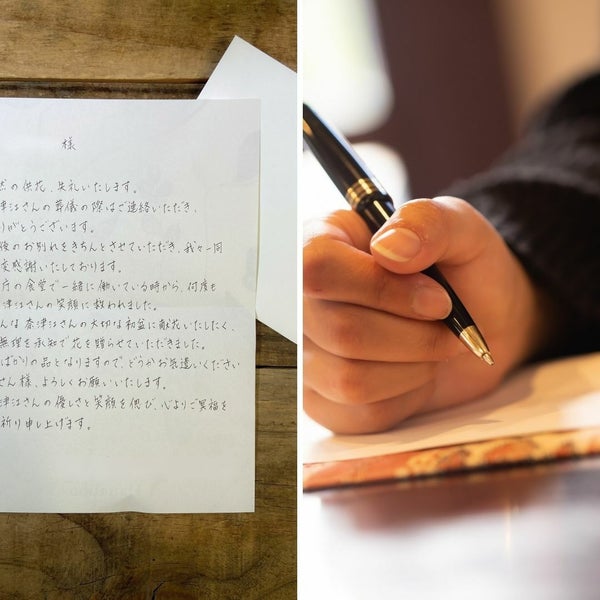 様
然の供花、失礼いたします。
津江さんの葬儀の際はご連絡いただき、
りがとうございます。
後のお別れをきちんとさせていただき、我々一同
変感謝いたしております。
庁の食堂で一緒に働いている時から、何度も
津江さんの笑顔に救われました。
んな奈津江さんの大切な初盆に献花いたしたく、
無理を承知で花を贈らせていただきました。
ばかりの品となりますので、どうかお気遣いください
せん様、よろしくお願いいたします。
津江さんの優しさと笑顔を偲び、心よりご冥福を
祈り申し上げます。